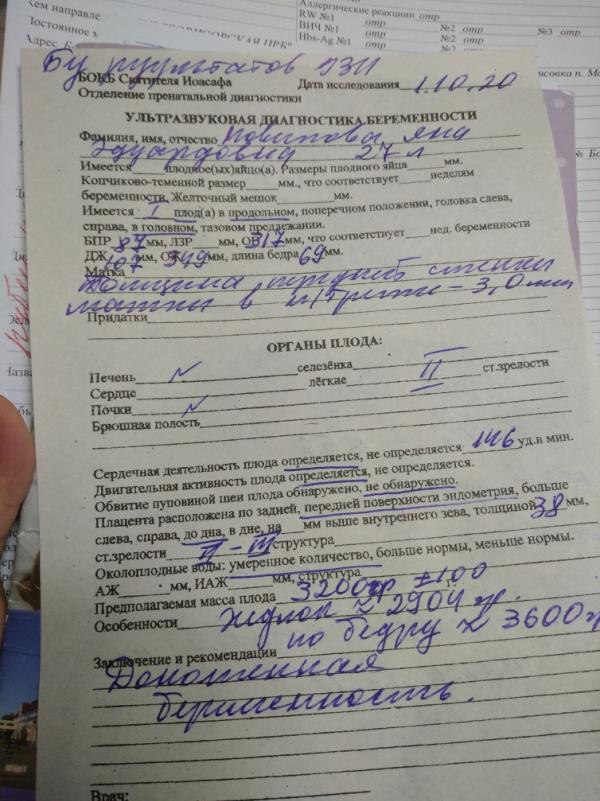 Кем направле
Постоянное м
Адрес
Аллергические реакции отр
RW №1 отр №2 отр №3 отр
ВИЧ №1 отр №2 отр
Hbs-Ag №1 отр №2
Бу результатов УЗИ
БОКБ Святителя Иоасафа Дата исследования 1.10.20
Отделение пренатальной диагностики
УЛЬТРАЗВУКОВАЯ ДИАГНОСТИКА БЕРЕМЕННОСТИ
Фамилия, имя, отчество Яна
Эдуардовна 27 л
Имеется плодное(ых)яйцо(а). Размеры плодного яйца мм.
Копчиково-теменной размер мм., что соответствует неделям
беременности, Желточный мешок мм.
Имеется I плод(а) в продольном, поперечном положении, головка слева,
справа, в головном, тазовом предлежании.
БПР 87 мм, ЛЗР мм, ОГ 317 мм, что соответствует нед. беременности
ДЖ 107 мм, ОЖ 349 мм, длина бедра 69 мм.
Матка
Толщина передней стенки
матки в н/трети – 3,0 мм
Придатки
ОРГАНЫ ПЛОДА:
Печень N селезёнка II ст.зрелости
Сердце лёгкие
Почки N
Брюшная полость
Сердечная деятельность плода определяется, не определяется 146 уд.в мин.
Двигательная активность плода определяется, не определяется.
Обвитие пуповиной шеи плода обнаружено, не обнаружено.
Плацента расположена по задней, передней поверхности эндометрия, больше
слева, справа, до дна, в дне, на мм выше внутреннего зева, толщиной 38 мм,
ст.зрелости II – III структура
Околоплодные воды: умеренное количество, больше нормы, меньше нормы.
АЖ мм, ИАЖ мм, структура
Предполагаемая масса плода 3200гр ±100
Особенности Хедлок ≈ 2904 гр.
по бедру ≈ 3600 г
Заключение и рекомендации
Доношенная
беременность.
Врач: